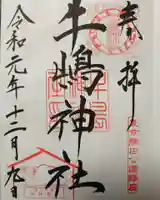 奉拝
牛嶋神社
令和元年十二月九日